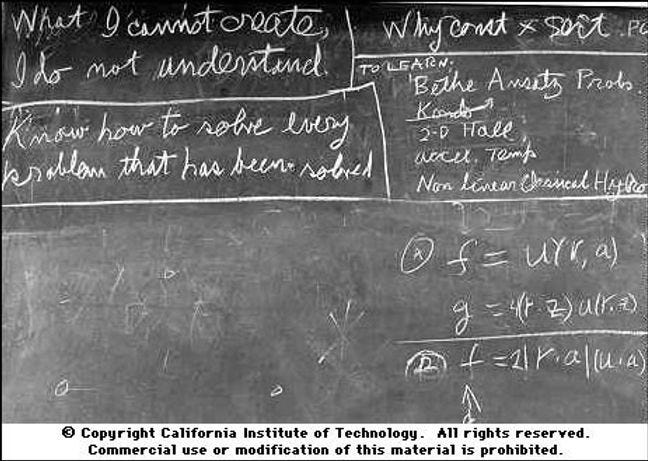 What I cannot create,
I do not understand.
Know how to solve every
problem that has been solved
Why const × sort . PO
TO LEARN:
Bethe Ansatz Probs.
Kondo
2-D Hall
accel. Temp
Non linear Classical Hydro
(A) f = U(r, a)
g = 4(r·z) u(r,z)
(B) f = 2|r·a|(u·a)
© Copyright California Institute of Technology. All rights reserved.
Commercial use or modification of this material is prohibited.